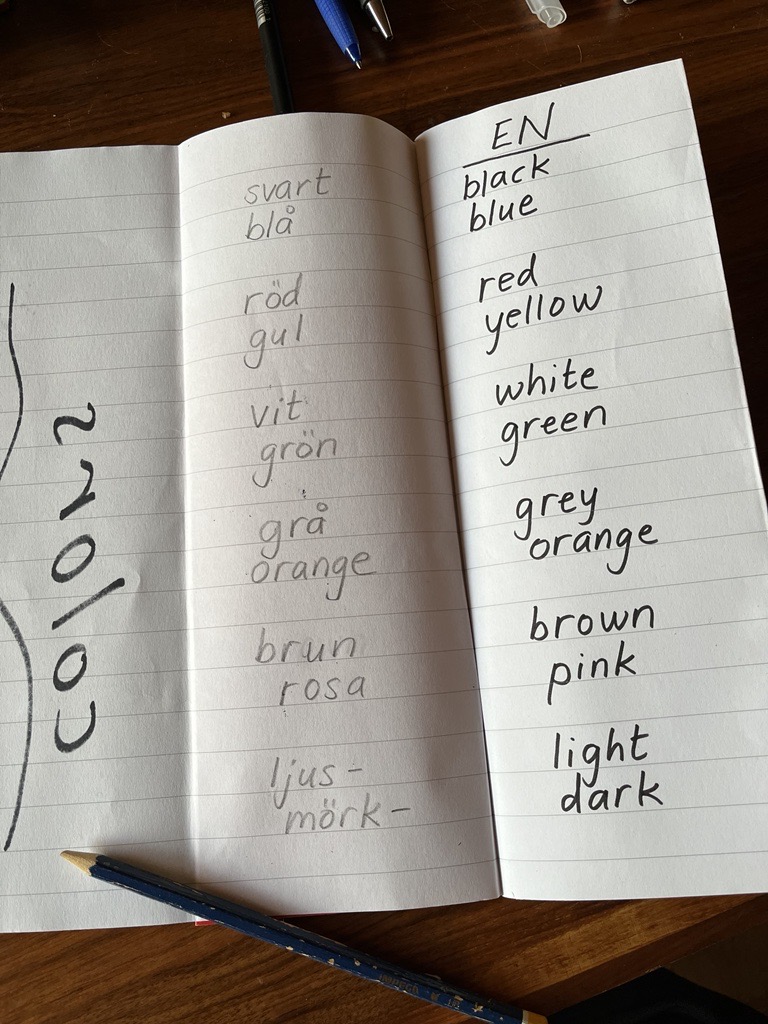 colors
svart
blå
röd
gul
vit
grön
grå
orange
brun
rosa
ljus-
mörk-
EN
black
blue
red
yellow
white
green
grey
orange
brown
pink
light
dark